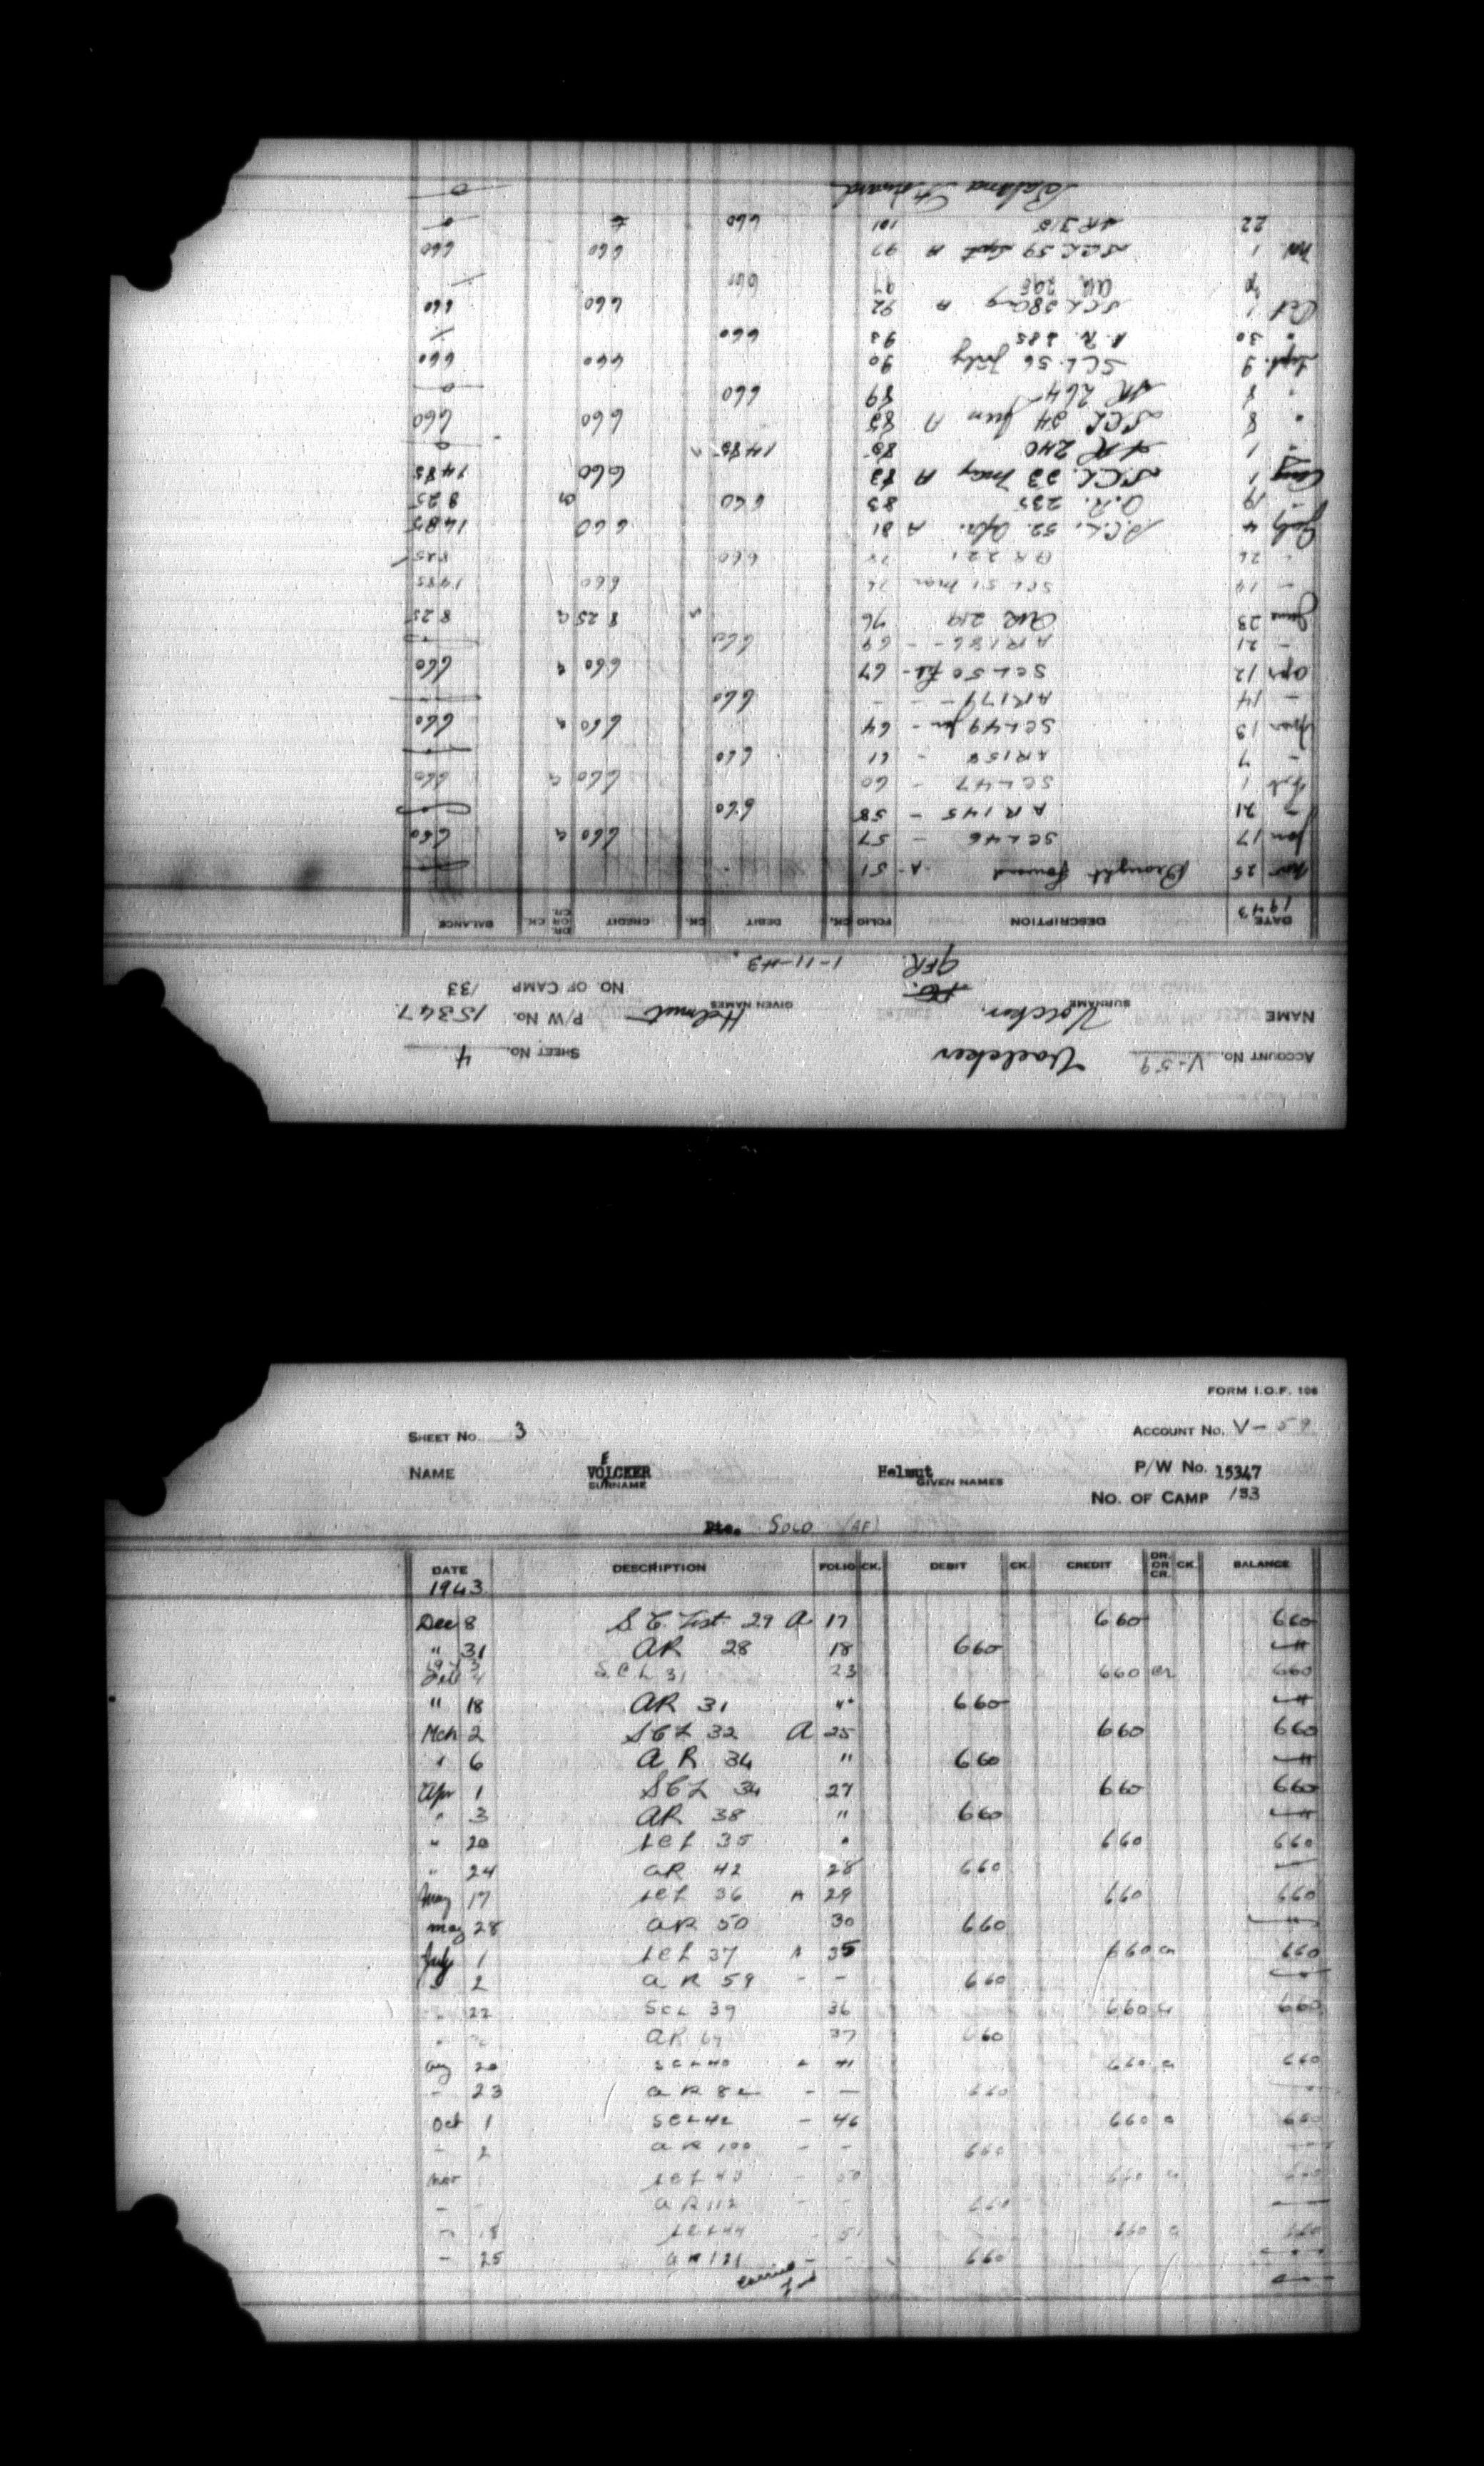 ACCOUNT No. V-59 Voelcker SHEET No. 4
NAME Volcker. SURNAME Helmut GIVEN NAMES P/W No. 15347
GFR. 1-11-43 NO. OF CAMP 133
DATE DESCRIPTION FOLIO CK. DEBIT CK. CREDIT DR. OR CR. CK. BALANCE
1943
Nov 25 Brought Forward A- 51
Jan 17 SCL 46 - 57 660 a 660
- 21 AR 145 - 58 660
Feb 1 SCL 47 - 60 660 a 660
- 7 AR 158 - 61 660
Mar 13 SCL 49 Jan - 64 660 a 660
- 14 AR 179 - - - 660
Apr 12 SCL 50 Feb - 67 660 a 660
- 21 AR 186 - - 69 660
June 23 AR 219 76 8 25 a 8 25
- 14 SCL 51 Mar 76 660 1485
- 26 AR 221 78 660 825
July 4 S.C.L. 52. Apr. A 81 660 1485
19 A.R. 235 83 660 cr 8 25
Aug 1 S.C.L. 53 May A 83 660 1485
" 1 AR 240 85 1485
" 8 SCL 54 Jun A 85 660 660
" 8 AR 264 89 660 0
Sept. 9 SCL. 56 July 90 660 660
" 30 A.R. 285 93 660
Oct 1 SCL 58 Aug A 92 660 660
AR 298 97 660
Nov. 1 SCL 59 Sept A 97 660 660
22 AR 310 101 660
Balance Forward 0
FORM I.O.F. 106
SHEET No. 3 ACCOUNT No. V-59
NAME VOLCKER E SURNAME Helmut GIVEN NAMES P/W No. 15347
NO. OF CAMP 133
Pte. SOLD (AF)
DATE DESCRIPTION FOLIO CK. DEBIT CK. CREDIT DR. OR CR. CK. BALANCE
1943
Dec 8 S.C. List 29 A 17 660 660
" 31 AR 28 18 660 "
Feb 4 S.C.L 31 23 660 cr 660
" 18 AR 31 " 660 "
Mch 2 SCL 32 A 25 660 660
" 6 AR 34 " 660 "
Apr 1 SCL 34 27 660 660
" 3 AR 38 " 660 "
" 20 SCL 35 " 660 660
" 24 AR 42 28 660
May 17 SCL 36 A 29 660 660
May 28 AR 50 30 660 "
July 1 SCL 37 A 35 660 cr 660
" 2 AR 59 - - 660
" 22 SCL 39 36 660 cr 660
" AR 67 37 660
Aug 20 SCL 40 A 41 660 a 660
- 23 AR 82 - - 660
Oct 1 SCL 42 - 46 660 a 660
- 2 AR 100 - - 660
Nov SCL 43 50 660 a 660
- AR 112 - - 660
- 18 SCL 44 - 51 660 a 660
- 25 AR 121 - - 660
Carried Fwd